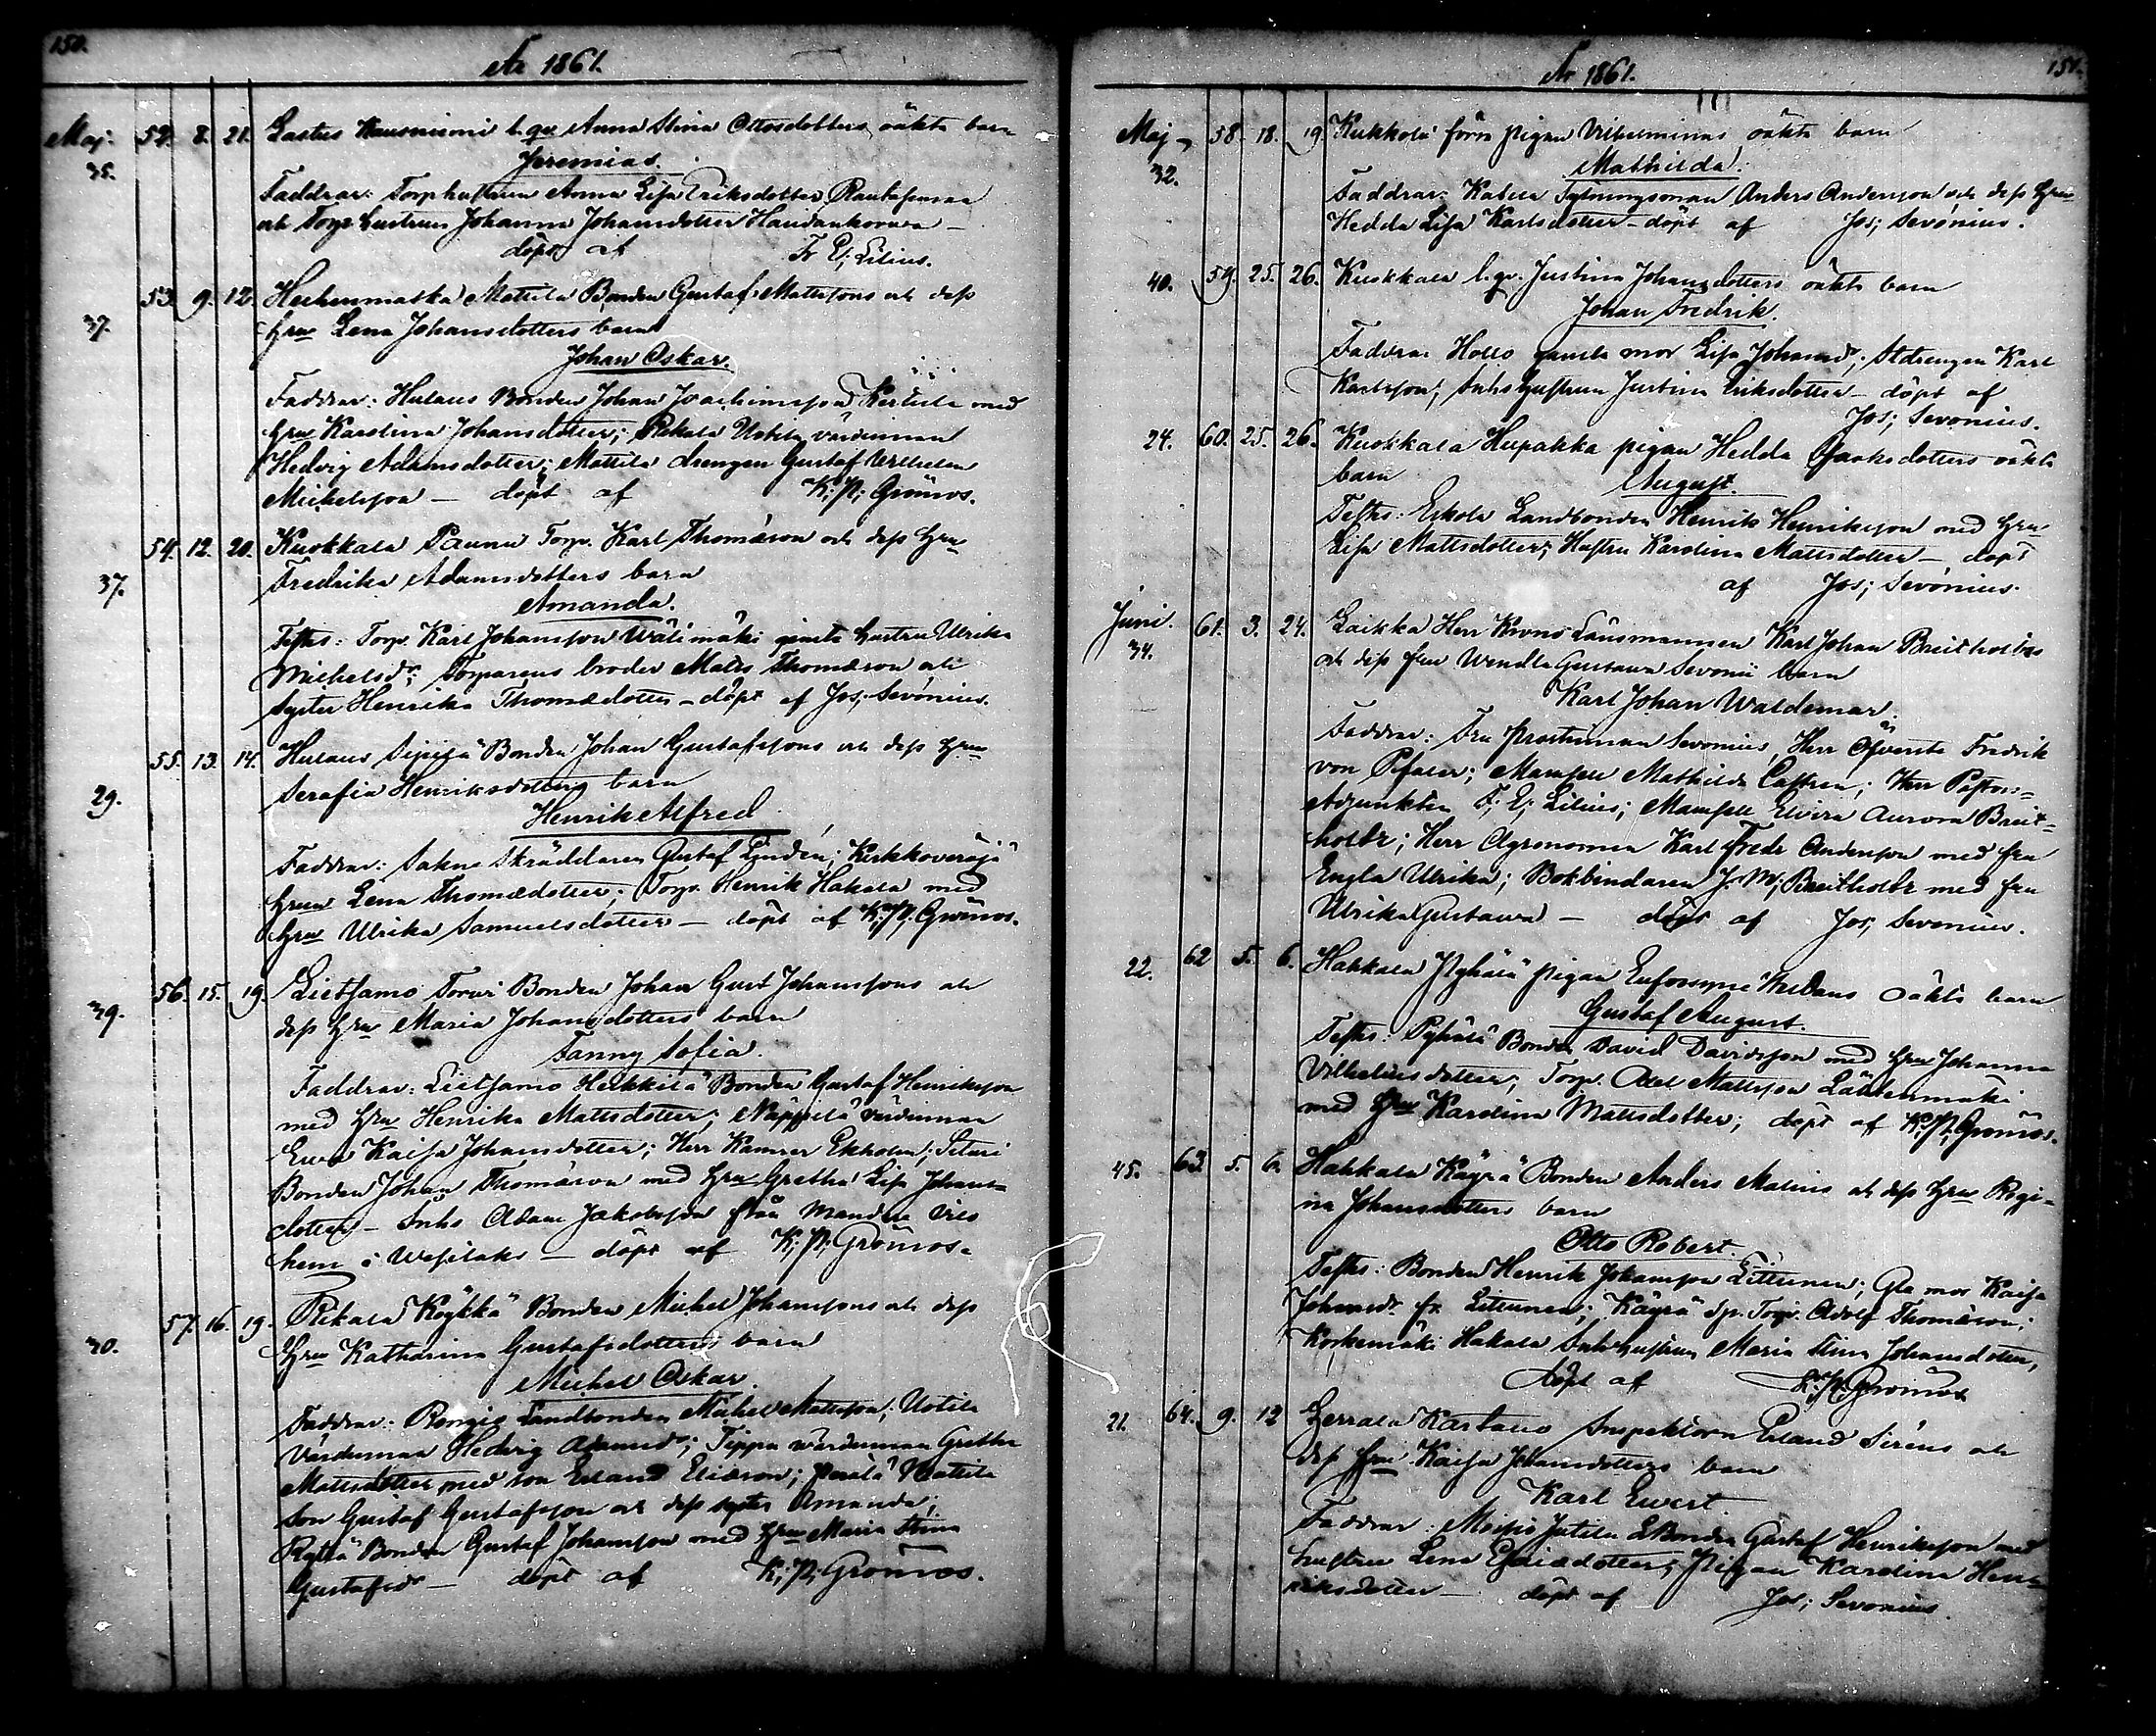 150.
År 1861.
Maj. 52. 8. 21. Lastus Kausniemi l. qv. Anna Stina Ottosdotters oäkta barn
35.
Jeremias.
Faddrar: Torp hustrun Anna Lisa Eriksdotter
och Torp hustrun Johanna Johansdotter
döpt af Fr E; Lilius.
53. 9. 12. Mattila Bonden Gustaf Mattssons och dess
37.
hru Lena Johansdotters barn
Johan Oskar.
Faddrar: Hulaus Bonden Johan Joachimsson Kertula med
hru Karolina Johansdotter; Rekala Uotila värdinnan
Hedvig Adamsdotter; Mattila drengen Gustaf Wilhelm
Michelsson — döpt af K; N; Grönroos.
54. 12. 20. Kuokkala Paunu Torp. Karl Thomæson och dess hru
37.
Fredrika Adamsdotters barn
Amanda.
Testes: Torp. Karl Johansson Wälimäki gamla hustru Ulrika
Michelsdr; Torparens broder Matts Thomæson och
syster Henrika Thomædotter – döpt af Jos; Sevónius.
55. 13. 14. Hulaus Sipilä Bonden Johan Gustafssons och dess hru
29.
Serafia Henriksdotters barn
Henrik Alfred
Faddrar: Sakns skräddaren Gustaf Lindén; Kirkkoveräjä
hrun Lena Thomædotter; Torp. Henrik Hakala med
hru Ulrika Samuelsdotter — döpt af K; N; Grönroos.
56. 15. 19. Lietsamo Torwi Bonden Johan Gust Johanssons och
39.
dess hru Maria Johansdotters barn
Fanny Sofia.
Faddrar: Lietsamo Heikkilä Bonden Gustaf Henriksson
med hru Henrika Mattsdotter; Näppilä värdinnan
Eva Kaisa Johansdotter; Herr Kamrer Ekholm;
Bonden Johan Thomæson med hru Gretha Lisa Johans-
dotter — Inhs Adam Jakobsson från
hem i Wesilaks — döpt af K; N; Grönroos.
57. 16. 19. Rekala Köykkä Bonden Michel Johanssons och dess
30.
hru Katharina Gustafsdotters barn
Michel Oskar.
Faddrar: Rongio Landbonden Michel Mattsson; Uotila
värdinnan Hedvig Adamsdr; Tippu värdinnan Gretha
Mattsdotter med son Erland Eliæson; Perälä Mattila
son Gustaf Gustafsson och dess syster Amanda;
Bonden Gustaf Johansson med hru Maria Stina
Gustafsdr — döpt af K; N; Grönroos.
151.
År 1861.
Maj 58. 18. 19. Kukkola förra pigan Vilhelminas oäkta barn
32.
Mathilda.
Faddrar: Anders Andersson och dess hru
Hedda Lisa Karlsdotter – döpt af Jos; Sevónius.
40. 59. 25. 26. Kuokkala l. qv. Justina Johansdotters oäkta barn
Johan Fredrik.
Faddrar: Hollo gamla mor Lisa Johansdr; Karl
Karlsson; Inhs hustrun Justina Eriksdotter — döpt af
Jos; Sevonius.
24. 60. 25. 26. Kuokkala pigan Hedda Isaksdotters oäkta
barn August.
Testes: Eskola Landbonden Henrik Henriksson med hru
Lisa Mattsdotter; Hustru Karolina Mattsdotter — döpt
af Jos; Sevónius.
Juni. 61. 3. 24. Laikka Herr Krono Länsmannen Karl Johan Breitholtzs
34.
och dess fru Wendla Gustava Sevonii barn
Karl Johan Waldemar.
Faddrar: Fru Prostinnan Sevonius, Herr Öfversten Fredrik
von Pfaler; Mamsell Mathilda Castren; Herr Pastors-
Adjunkten F; E; Lilius; Mamsell Elvira Aurora Breit-
holtz; Herr Agronomen Karl Fredr Andersson med fru
Engla Ulrika; Bokbindaren J. M; Breitholtz med fru
Ulrika Gustava — döpt af Jos; Sevonius.
22. 62 5. 6. Hakkala Pyhälä pigan Eufrosyne oäkta barn
Gustaf August.
Testes: Pyhälä Bonden David Davidsson med hru Johanna
Vilhelmsdotter; Torp. Axel Mattsson
med hru Karolina Mattsdotter; döpt af K; N; Grönroos.
45. 63. 5. 6. Hakkala Käyrä Bonden Anders Malins och dess hru Regi-
na Johansdotters barn
Otto Robert.
Testes: Bonden Henrik Johansson Littunen; Gla mor Kaisa
Johansdr fr. Littunen; Käyrä Torp. Adolf Thomæson;
Hakala Inhs hustrun Maria Stina Johansdotter,
döpt af K; N; Grönroos
21. 64. 9. 12 Herrala Kartano Inspektorn Erland Siréns och
dess hru Kaisa Johansdotters barn
Karl Ewert
Faddrar: Moisio Jutila LBonden Gustaf Henriksson med
hustru Lena Eliædotter; Pigan Karolina Hen-
riksdotter — döpt af Jos; Sevonius.